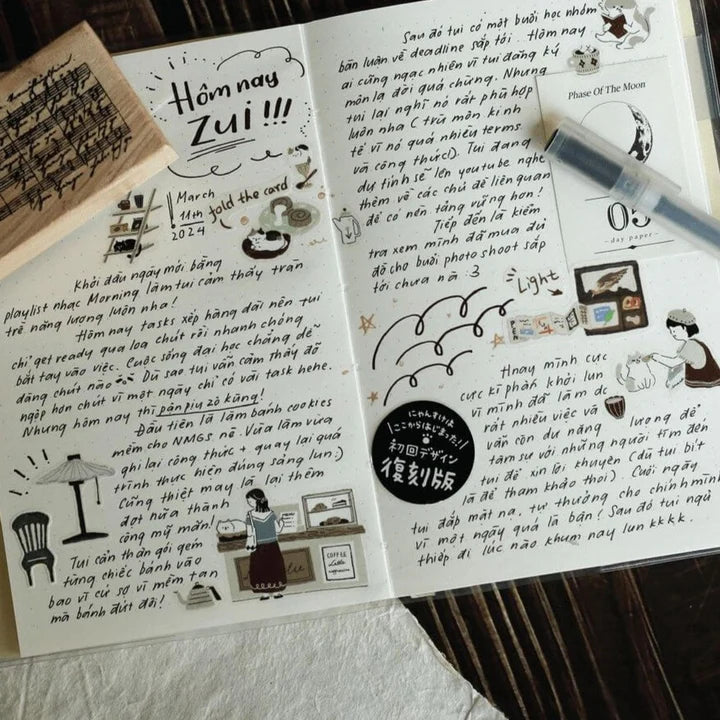 Hôm nay
zui!!!
March
11th
2024
fold the card
Khởi đầu ngày mới bằng
playlist nhạc Morning làm tui cảm thấy tràn
trề năng lượng luôn nha!
Hôm nay tasks xếp hàng dài nên tui
chỉ get ready qua loa chút rồi nhanh chóng
bắt tay vào việc. Cuộc sống đại học chẳng dễ
dàng chút nào Dù sao tui vẫn cảm thấy đỡ
ngộp hơn chút vì một ngày chỉ có vài task hehe.
Nhưng hôm nay thì pàn piu zô kùng!
Đầu tiên là làm bánh cookies
mềm cho NMGS nè. Vừa làm vừa
ghi lại công thức + quay lại quá
trình thực hiện đúng sáng lun:)
Cũng thiệt may là lại thêm
đợt nữa thành
công mỹ mãn!
Tui cẩn thận gói ghém
từng chiếc bánh vào
bao vì cứ sợ vì mềm tan
mà bánh đứt đôi!
COFFEE
Latte
Sau đó tui có một buổi học nhóm
bàn luận về deadline sắp tới. Hôm nay
ai cũng ngạc nhiên vì tui đăng ký
môn lạ đời quá chừng. Nhưng
tui lại nghĩ nó rất phù hợp
luôn nha (trừ môn kinh
tế vì nó quá nhiều terms
và công thức). Tui đang
dự tính sẽ lên youtube nghe
thêm về các chủ đề liên quan
để có nền tảng vững hơn!
Tiếp đến là kiểm
tra xem mình đã mua đủ
đồ cho buổi photo shoot sắp
tới chưa nà :3
Phase Of The Moon
05
- day paper -
Light
にゃんすけは
ここからはじまった!
初回デザイン
復刻版
Hnay mình cực
cực kì phấn khởi lun
vì mình đã làm đc
rất nhiều việc và
vẫn còn dư năng lượng để
tâm sự với những người tìm đến
tui để xin lời khuyên (dù tui biết
là để tham khảo thoi). Cuối ngày
tui đắp mặt nạ, tự thưởng cho chính mình
vì một ngày quá là bận! Sau đó tui ngủ
thiếp đi lúc nào khum nay lun kkkk.